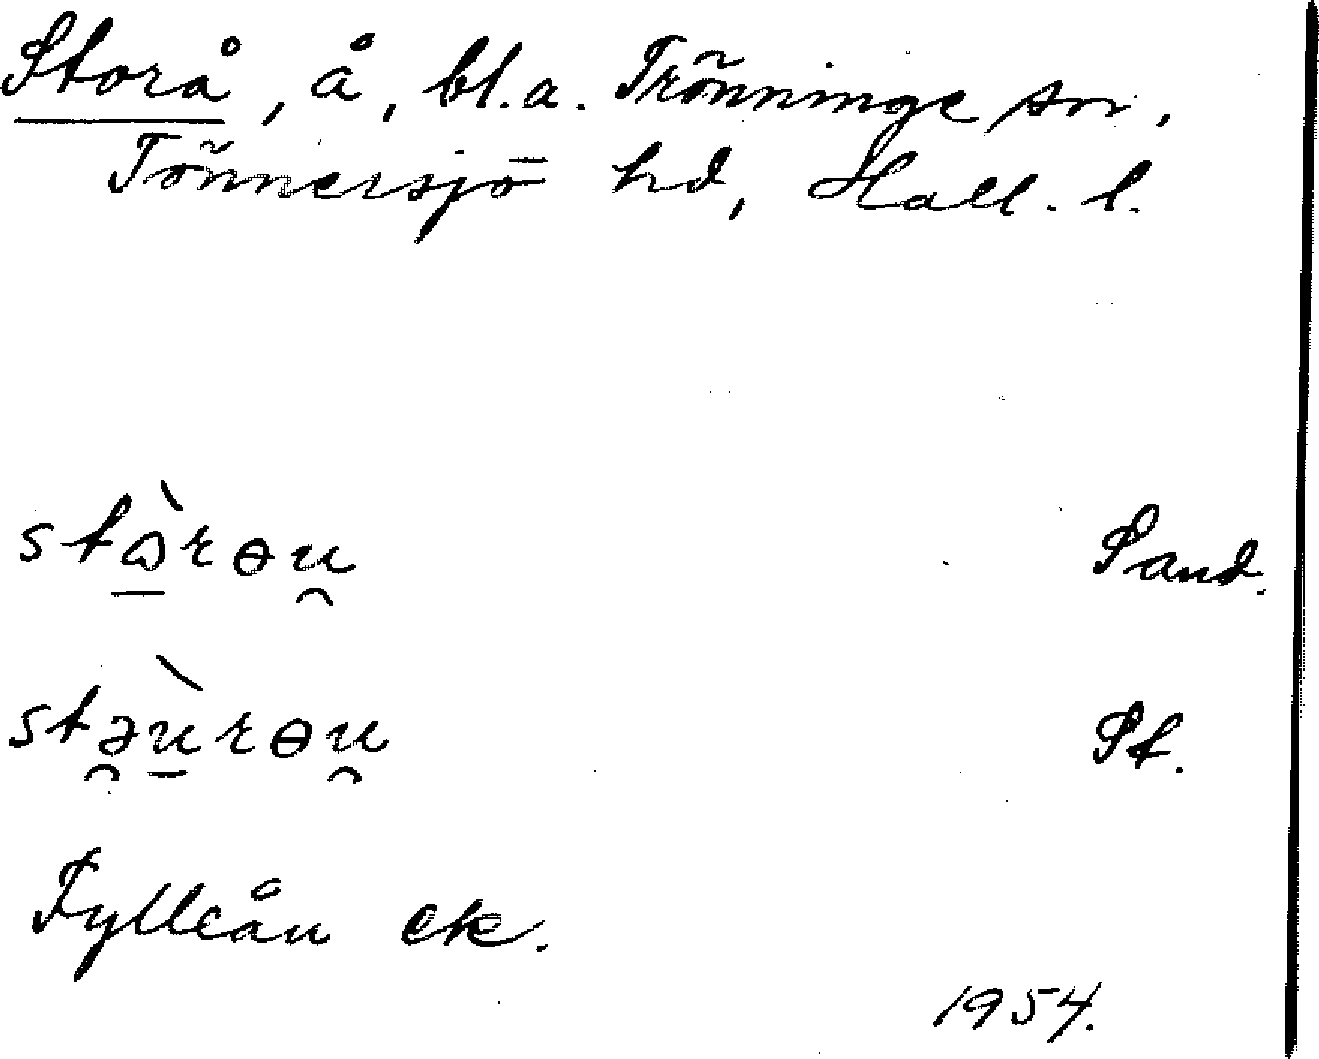 Storå, å, bl.a. Trönninge sn,
Tönnersjö hd, Hall. l.
stɷ̠̀rɵu̯ Sand.
stə̯ù̠rɵu̯ St.
Fylleån ek.
1954.